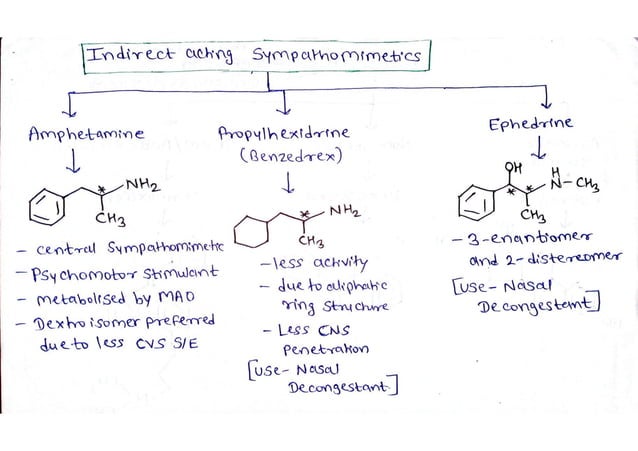 Indirect acting Sympathomimetics
Amphetamine
NH2
*
CH3
- central Sympathomimetic
- Psychomotor Stimulant
- metabolised by MAO
- Dextroisomer preferred
due to less CVS S/E
Propylhexidrine
(Benzedrex)
NH2
*
CH3
- less activity
- due to aliphatic
ring structure
- Less CNS
penetration
[use - Nasal
Decongestant]
Ephedrine
OH
H
* * N-CH3
CH3
- 3-enantiomer
and 2-distereomer
[use - Nasal
Decongestant]